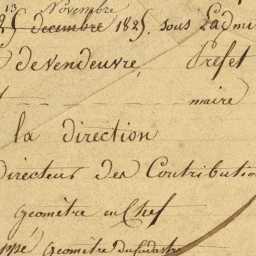 13 Novembre
25 decembre 1825, sous l'admi
de Vendeuvre, Préfet
maire
la direction
directeur des Contributio
Géomètre en Chef
Géomètre du Cadastre